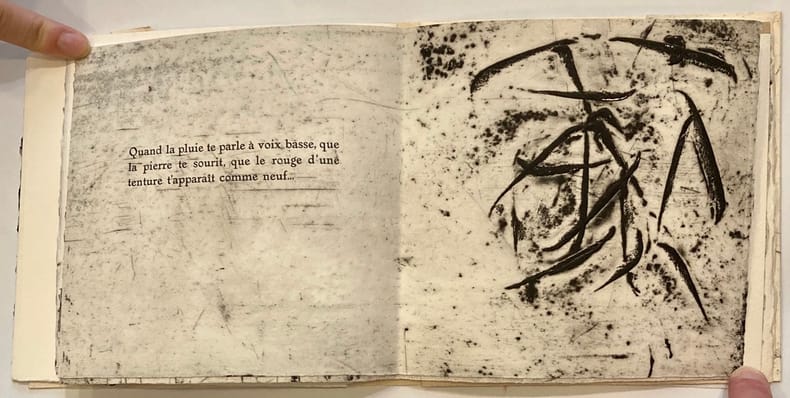 Quand la pluie te parle à voix basse, que
la pierre te sourit, que le rouge d'une
tenture t'apparaît comme neuf...